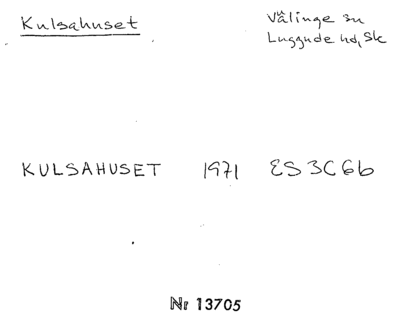 Kulsahuset
Välinge sn
Luggude hd, Sk
KULSAHUSET 1971 ES3C6b
Nr 13705